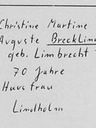 Christine Martine
Auguste Brecklin
geb. Limbrecht
70 Jahre
Hausfrau
Lindholm